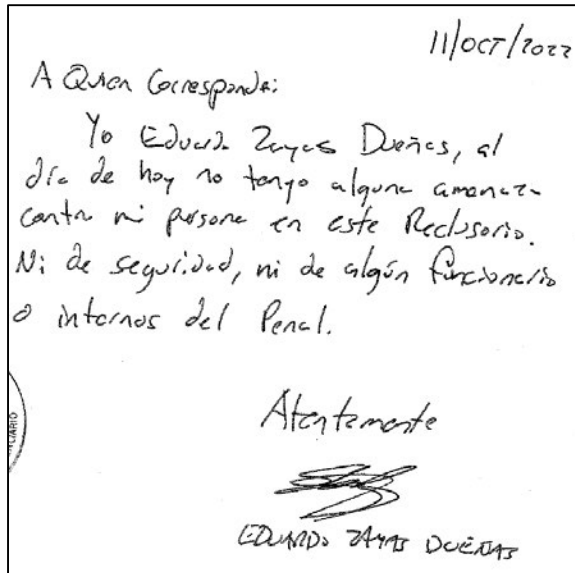 11/OCT/2022
A Quien Corresponda:
Yo Eduardo Zayas Dueñas, al
día de hoy no tengo alguna amenaza
contra mi persona en este Reclusorio.
Ni de seguridad, ni de algún funcionario
o internos del Penal.
Atentamente
EDUARDO ZAYAS DUEÑAS